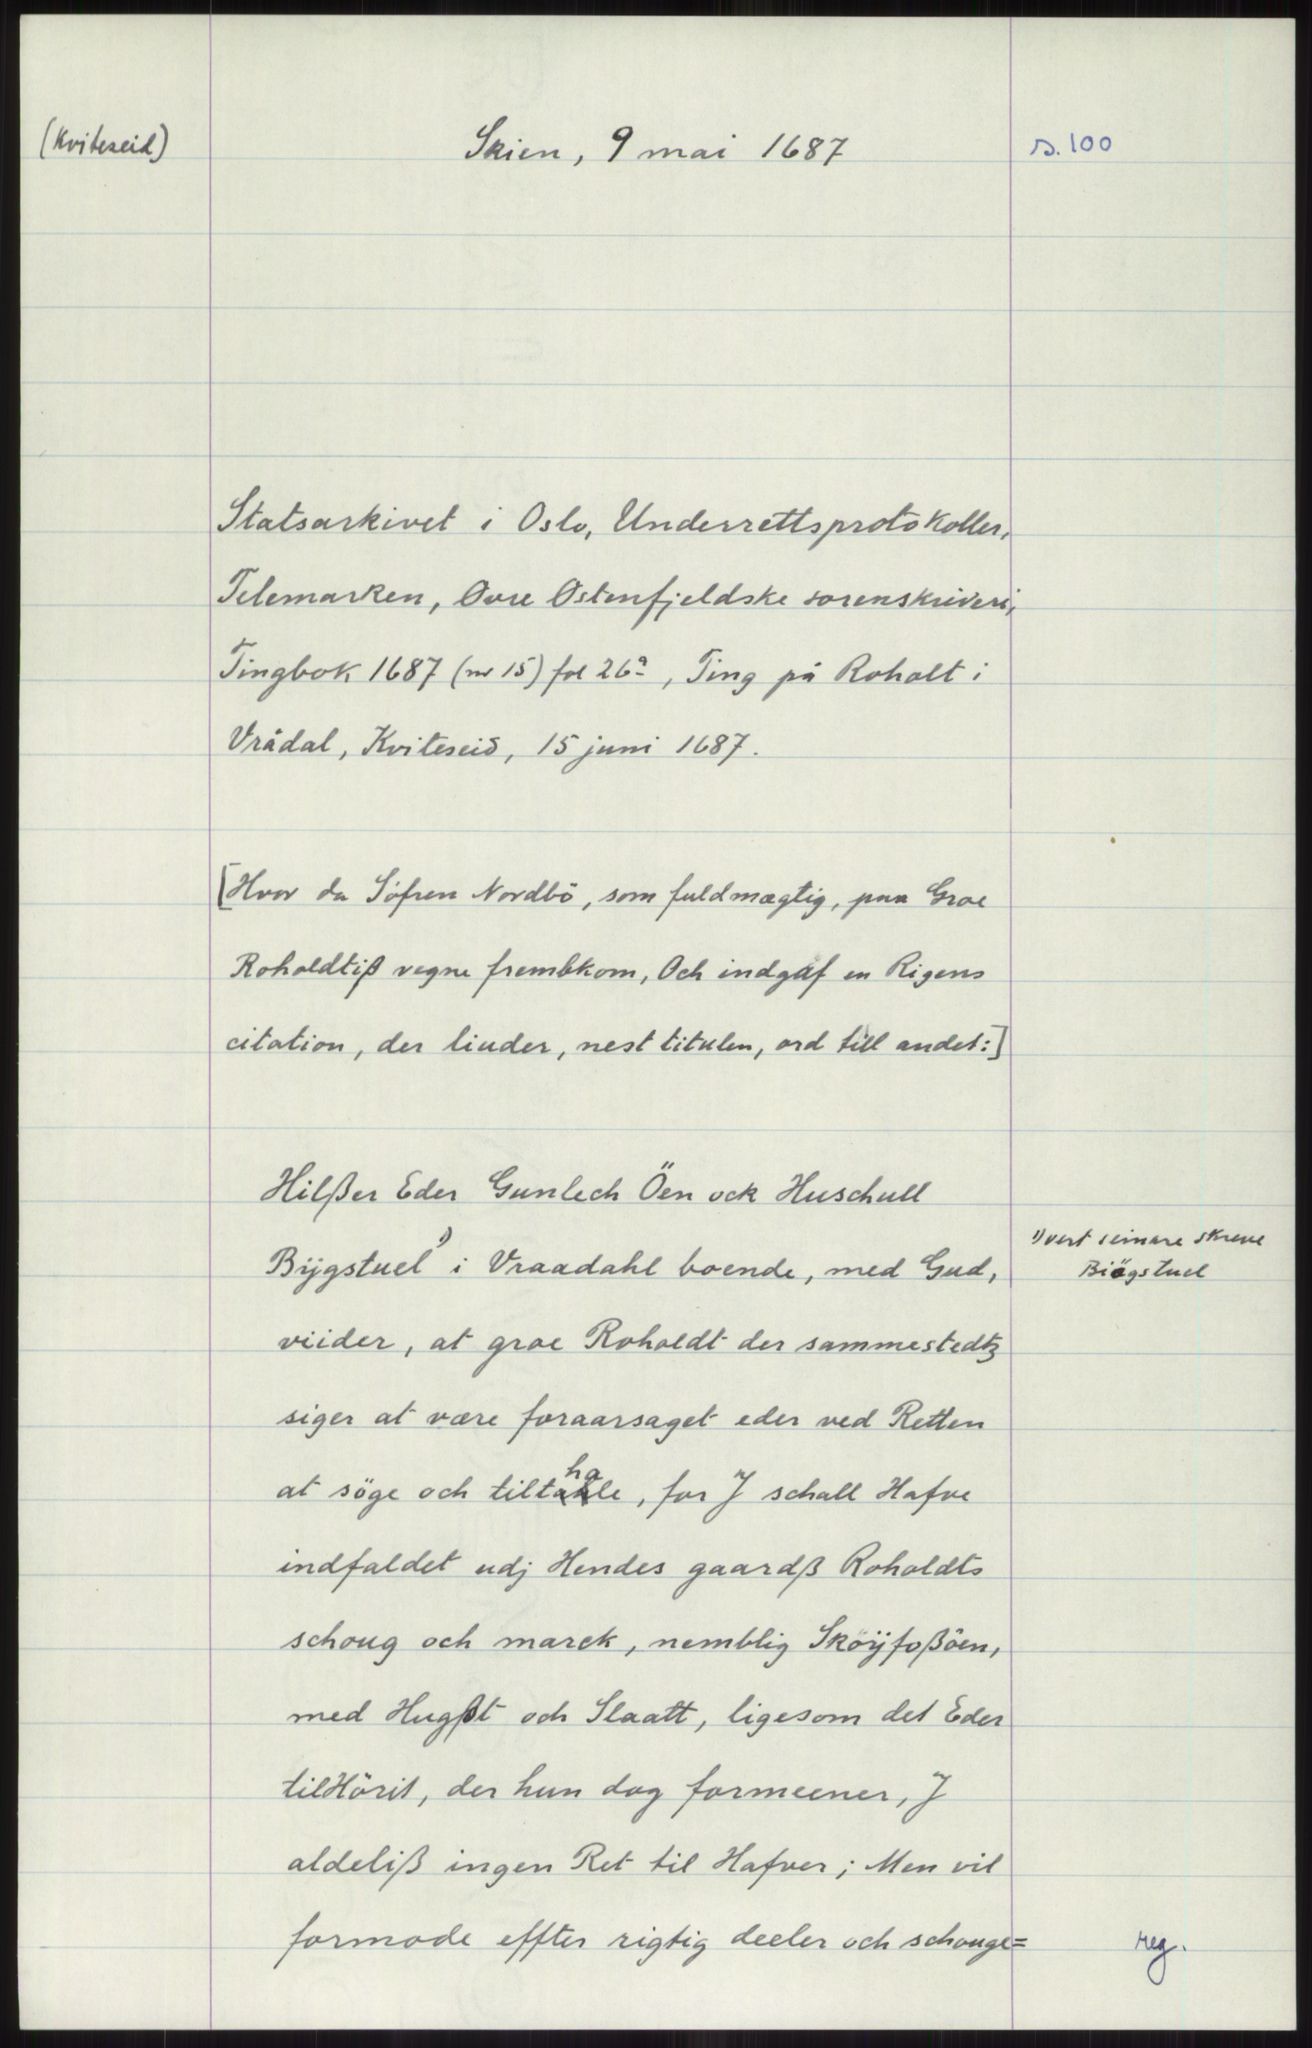 (Kviteseid)
Skien, 9 mai 1687
s. 100
Statsarkivet i Oslo, Underrettsprotokoller,
Telemarken, Øvre Østenfjeldske sorenskriveri,
Tingbok 1687 (nr 15) fol 26a, Ting på Roholt i
Vrådal, Kviteseid, 15 juni 1687.
[Hvor da Söfren Nordbö, som fuldmægtig, paa Groe
Roholdtiß vegne frembkom, Och indgaf en Rigens
citation, der liuder, nest titulen, ord till andet:]
Hilßer Eder Gunlech Öen ock Huschull
Bÿgstuel 1) i Vraadahl boende, med Gud,
1) vert seinare skreve
Biögstuel
viider, at groe Roholdt der sammestedtz
siger at være foraarsaget eder ved Retten
at söge och tiltahale, for J schall Hafve
indfaldet udj Hendes gaardß Roholdts
schoug och marck, nemblig Sköÿfoßöen,
med Hugßt och Slaatt, ligesom det Eder
tilHörit, der hun dog formeener, J
aldeliß ingen Ret til Hafver; Men vil
formode effter rigtig deeler och schouge=
reg.